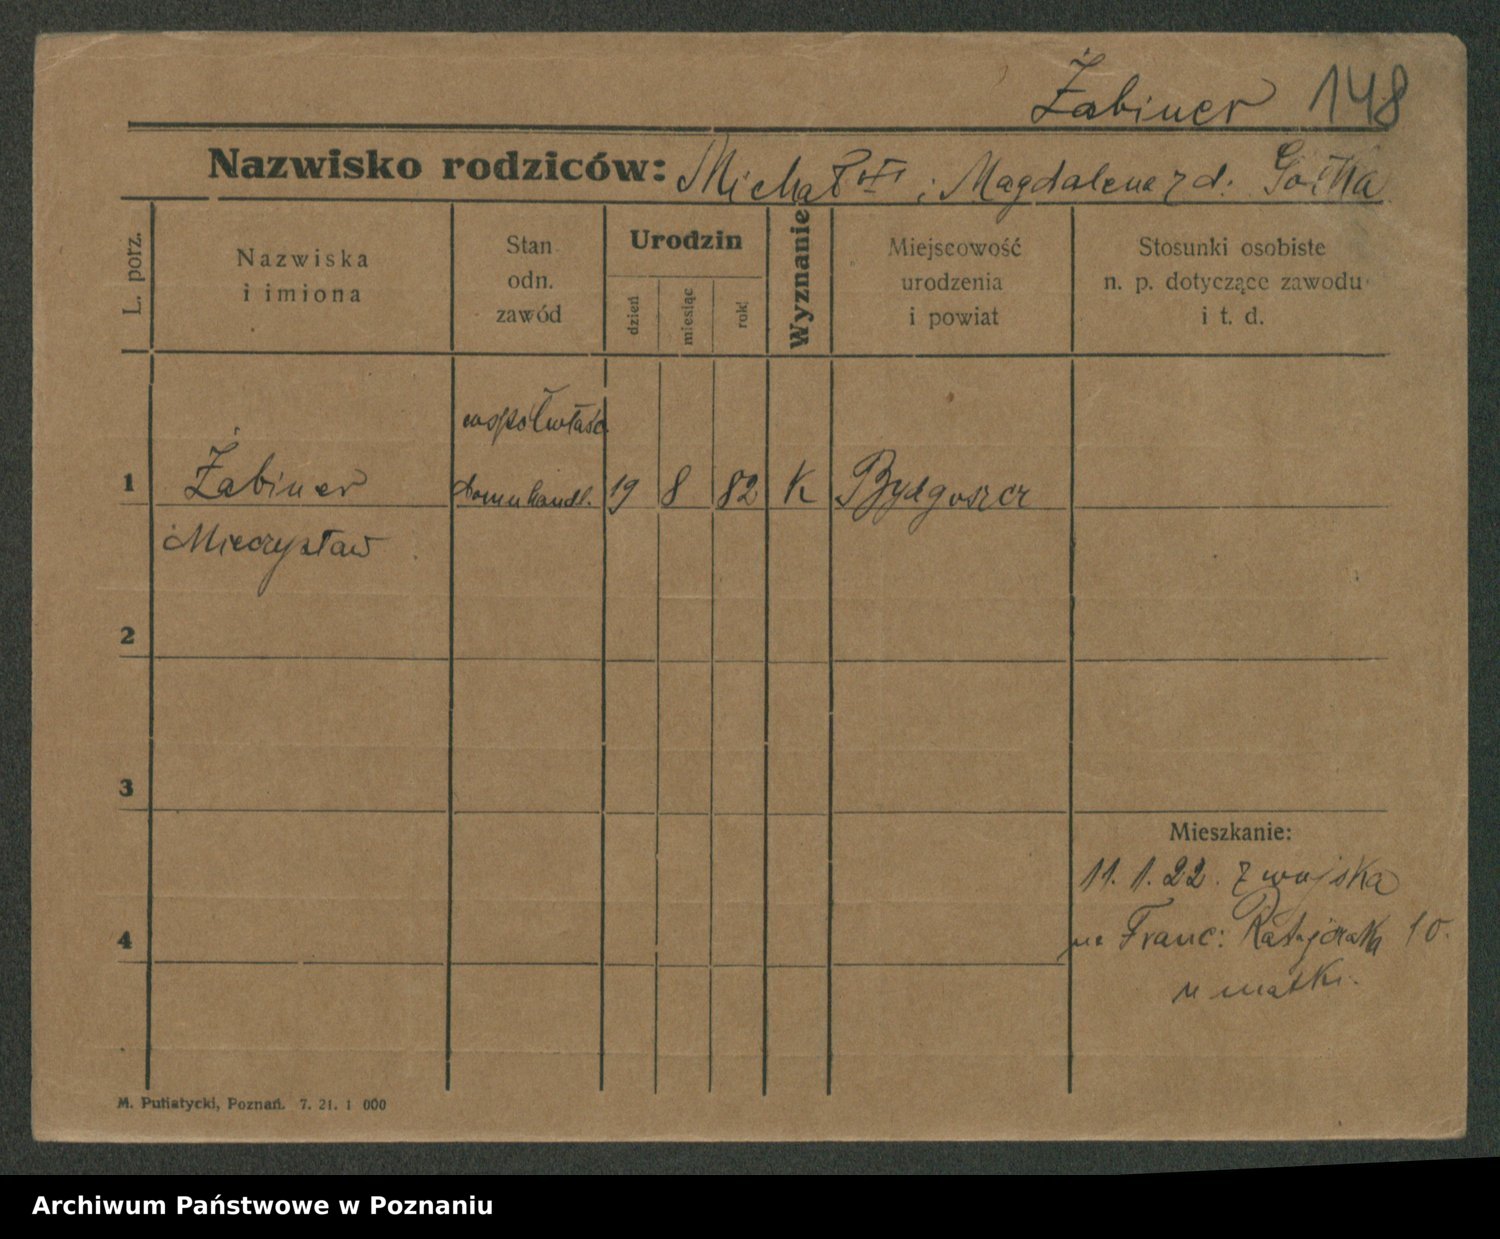 Żabiner 148
Nazwisko rodziców: Michał i Magdalena z d. Gółka
L. porz.
Nazwiska
i imiona
Stan
odn.
zawód
Urodzin
dzień
miesiąc
rok
Wyznanie
Miejscowość
urodzenia
i powiat
Stosunki osobiste
n. p. dotyczące zawodu
i t. d.
współwłaśc.
1 Żabiner domu handl. 19 8 82 K Bydgoszcz
Mieczysław
2
3
Mieszkanie:
11. 1. 22. z wojska
4 na Franc: Ratajczaka 10.
u matki.
M. Putiatycki, Poznań. 7. 21. 1 000
Archiwum Państwowe w Poznaniu